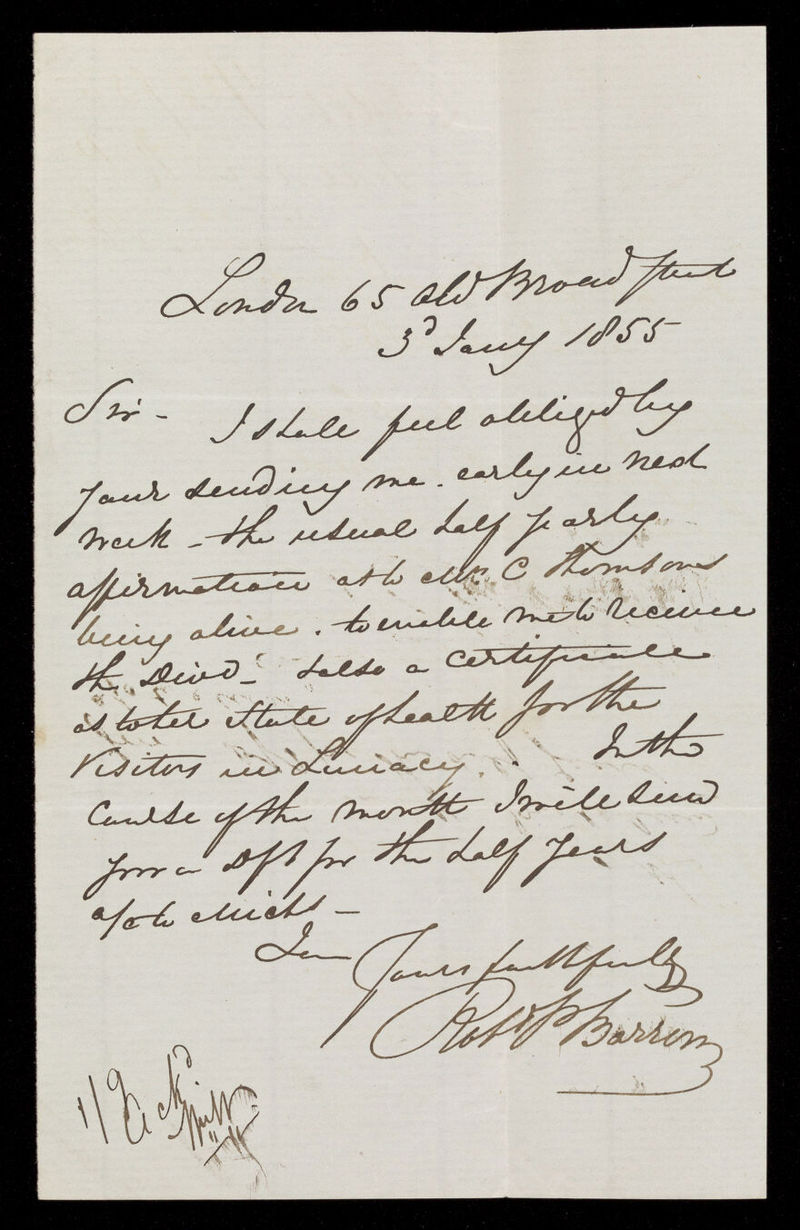 London 65 Old Broad Street
3d Jany 1855
Sir - I shall feel obliged by
your sending me. early in next
week - the usual half yearly
affirmation as to Mrs C Thomsons
being alive. to enable me to receive
the Divd - & also a Certificate
as to her State of health for the
Visitors in Lunacy. . In the
Course of the month I will send
you a Dft for the half years
a/c to Michs -
I am Yours faithfully
Robt P Barrow
Ackd